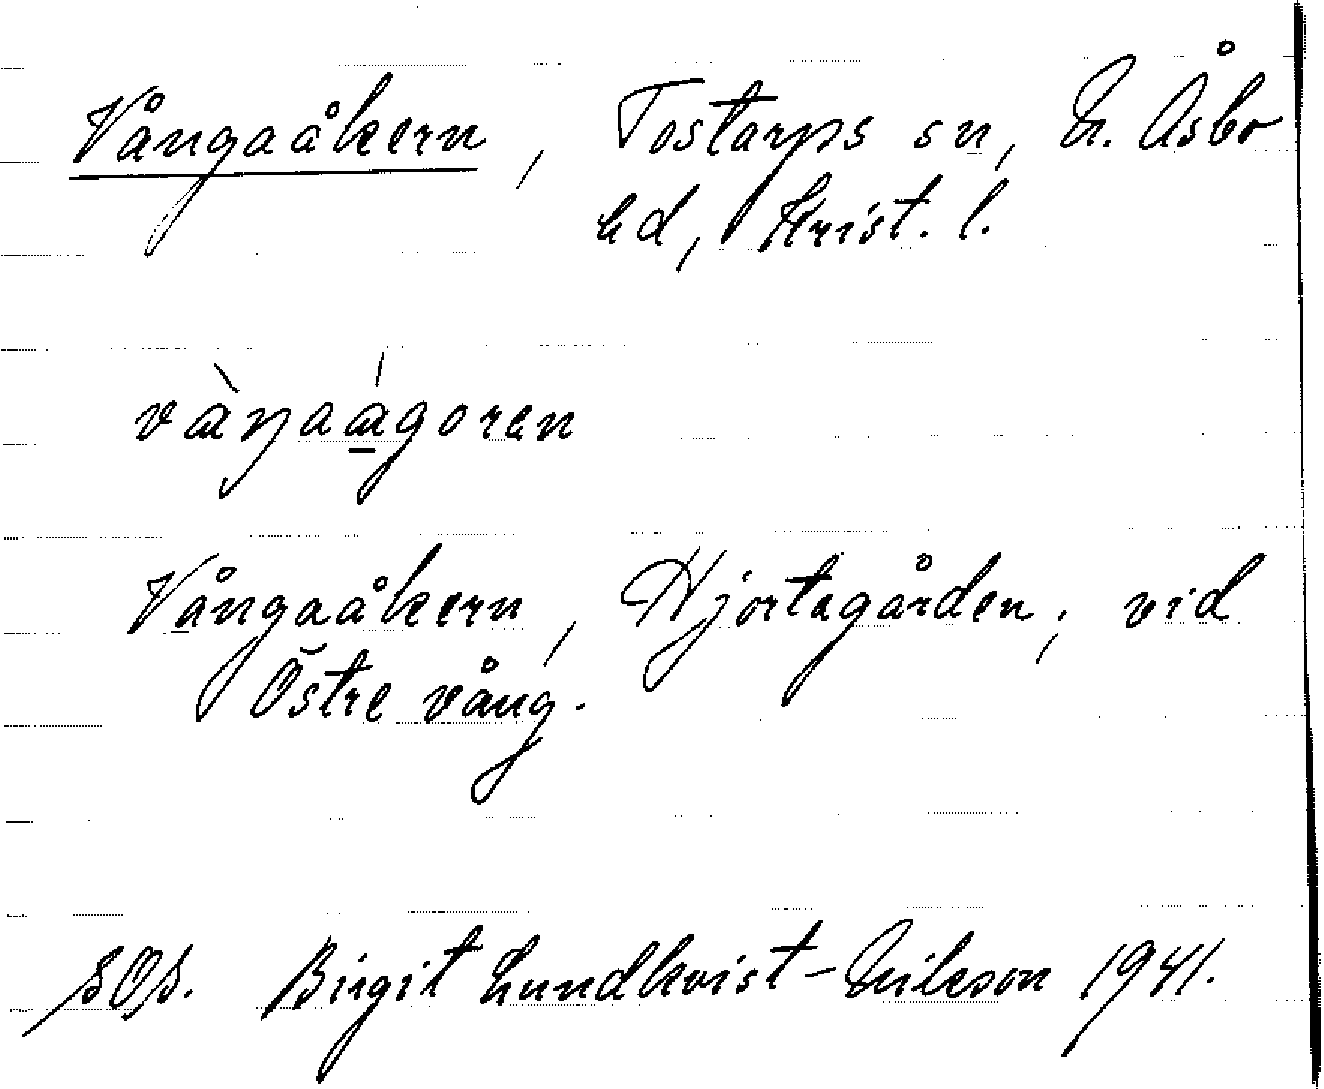 Vångaåkern, Tostarps sn, N. Åsbo
hd, Krist. l.
våŋaågoren
Vångaåkern, Hjortagården; vid
Östre vång.
SOS. Birgit Lundkvist-Erikson 1941.